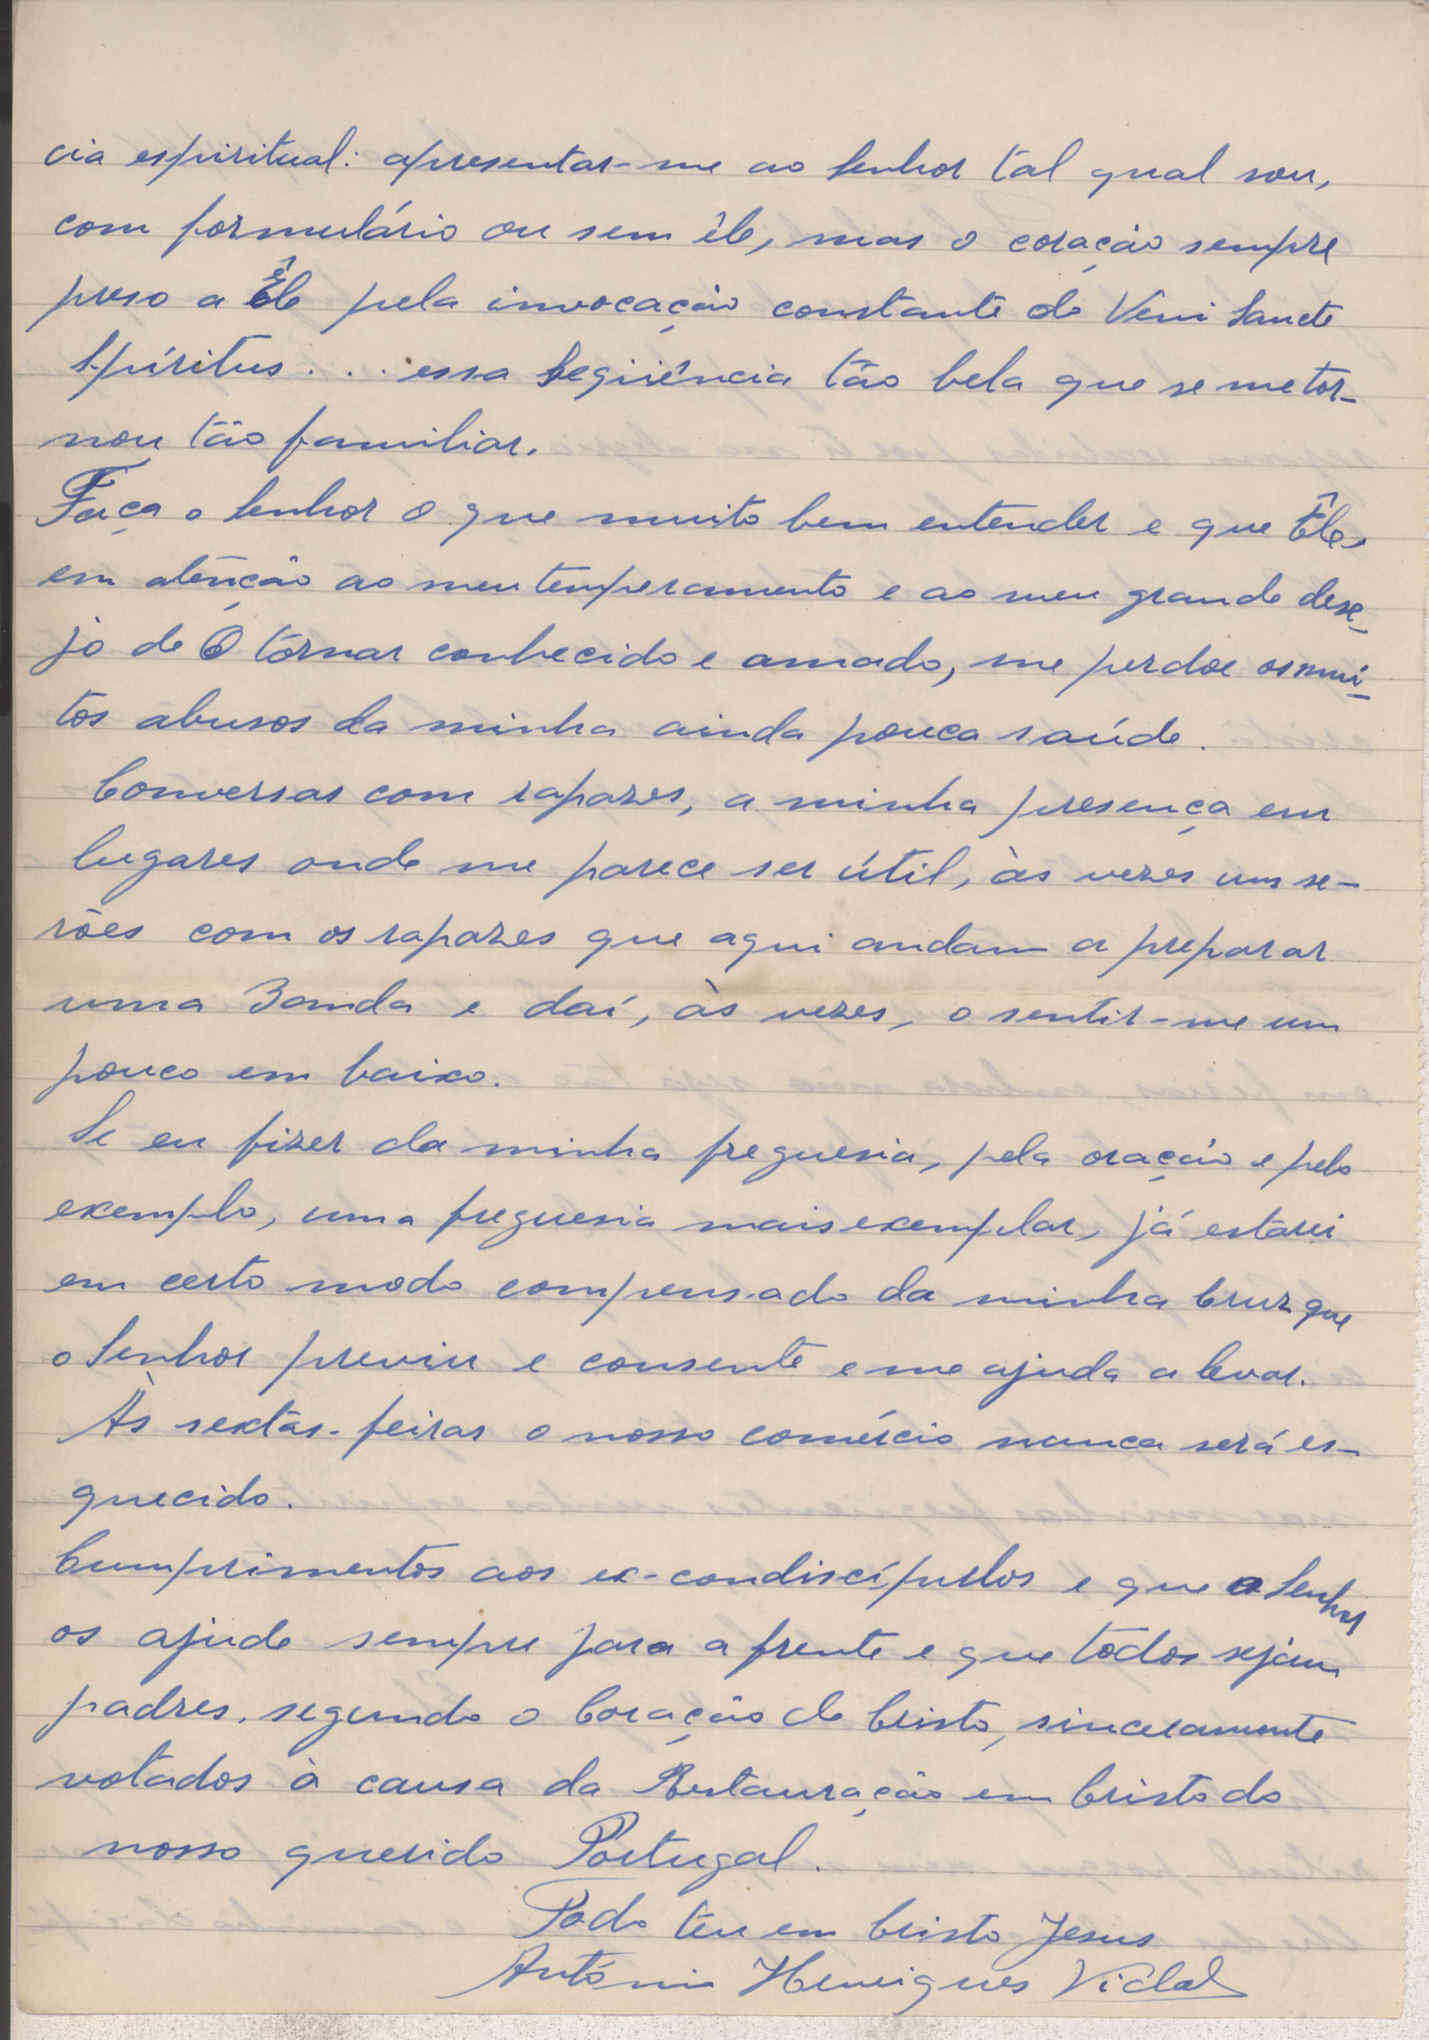 cia espiritual: apresentar-me ao Senhor tal qual sou,
com formulário ou sem êle, mas o coração sempre
preso a Êle pela invocação constante do Veni Sancte
Spíritus... essa Seqüência tão bela que se me tor-
nou tão familiar.
Faça o Senhor o que muito bem entender e que Êle,
em atenção ao meu temperamento e ao meu grande dese-
jo de O tornar conhecido e amado, me perdoe os mui-
tos abusos da minha ainda pouca saúde.
Conversas com rapazes, a minha presença em
lugares onde me parece ser útil, às vezes uns se-
rões com os rapazes que aqui andam a preparar
uma Banda e daí, às vezes, o sentir-me um
pouco em baixo.
Se eu fizer da minha freguesia, pela oração e pelo
exemplo, uma freguesia mais exemplar, já estarei
em certo modo compensado da minha Cruz que
o Senhor previu e consente e me ajuda a levar.
Às sextas-feiras o nosso comércio nunca será es-
quecido.
Cumprimentos aos ex-condiscípulos e que o Senhor
os ajude sempre para a frente e que todos sejam
padres, segundo o Coração de Cristo, sinceramente
votados à causa da Restauração em Cristo do
nosso querido Portugal.
Todo teu em Cristo Jesus
António Henriques Vidal